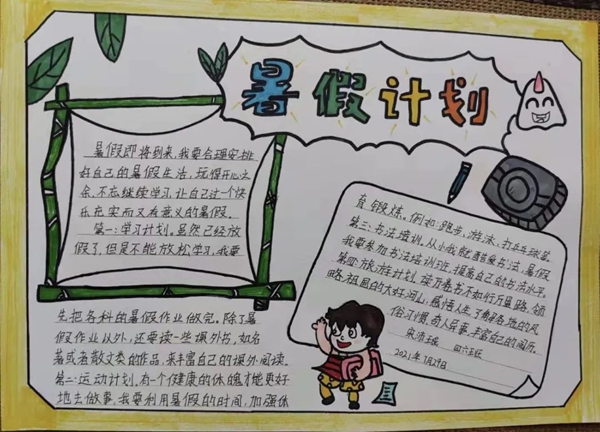 暑假计划
暑假即将到来，我要合理安排
好自己的暑假生活，玩得开心之
余，不忘继续学习，让自己过一个快
乐充实而又有意义的暑假。
第一：学习计划。虽然已经放
假了，但是不能放松学习，我要
先把各科的暑假作业做完。除了暑
假作业以外，还要读一些课外书，如名
著或者散文类的作品，来丰富自己的课外阅读。
第二：运动计划，有一个健康的体魄才能更好
地去做事，我要利用暑假的时间，加强体
育锻炼。例如：跑步、游泳、打乒乓球等
第三：书法培训，从小我就酷爱书法，暑假
我要参加书法培训班，提高自己的书法水平。
第四：旅游计划。读万卷书不如行万里路，领
略祖国的大好河山，感悟人生，了解各地的风
俗习惯、奇人异事，丰富自己的阅历。
四六班
2021年7月29日